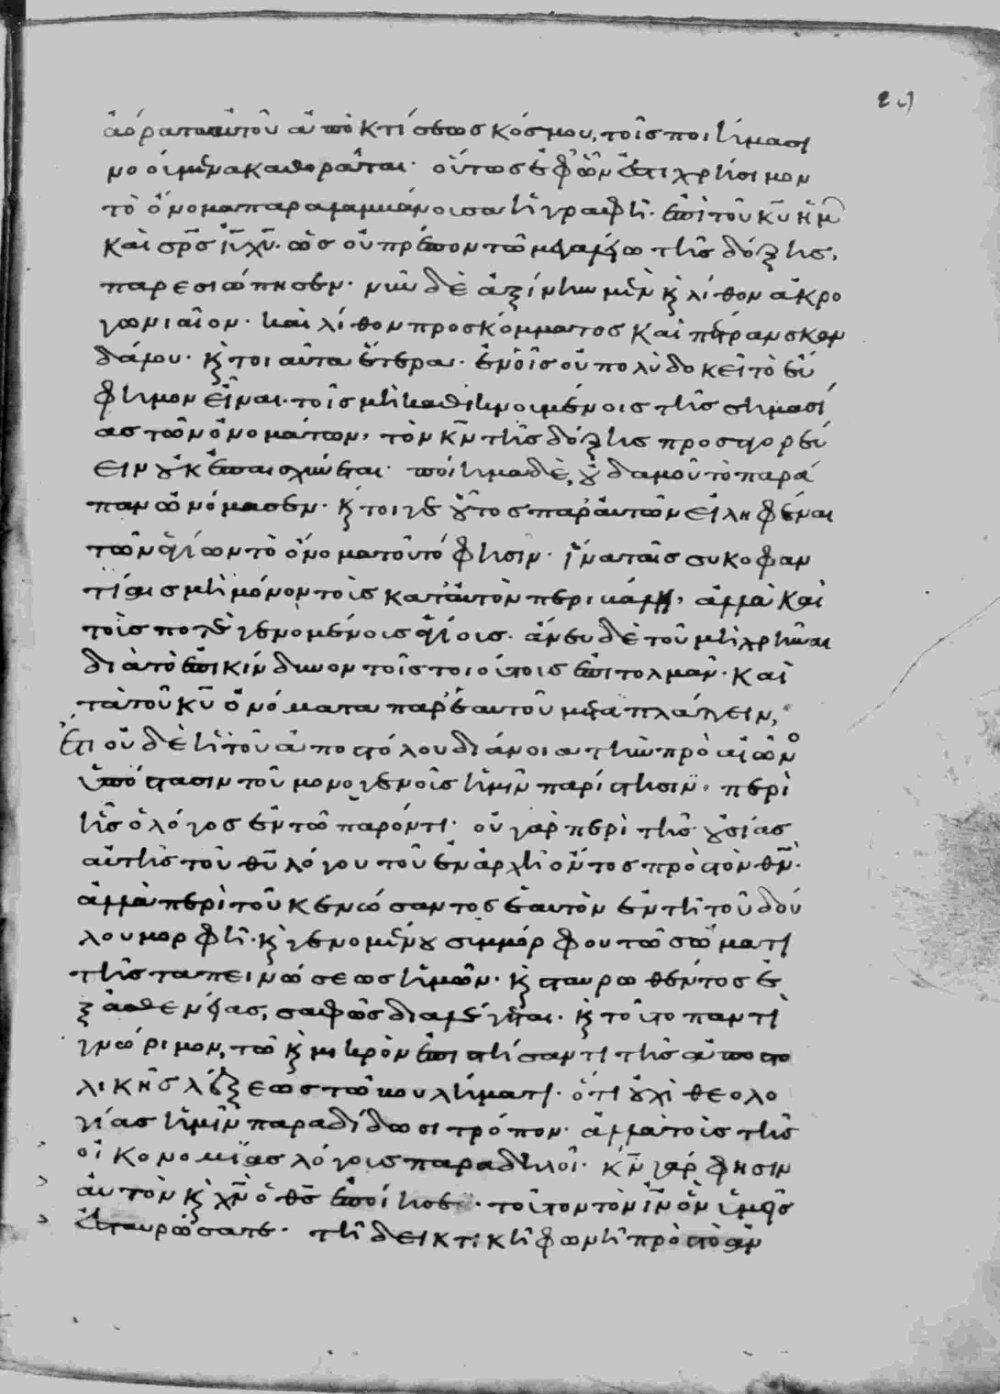 ἀόρατα αὐτοῦ ἀπὸ κτίσεως κόσμου, τοῖς ποιήμασι
νοούμενα καθορᾶται· οὕτως ἐφ' ὧν ἐστι χρήσιμον
τὸ ὄνομα παραλαμβάνουσα ἡ γραφή· ἐπὶ τοῦ κ̅υ̅ ἡμ
καὶ σ̅ρ̅ς ι̅υ̅ χ̅υ̅· ὡς οὐ πρέπον τῷ μεγαλείῳ τῆς δόξης,
παρεσιώπησεν· νῦν δὲ ἀξίνην μὲν κ̀ λίθον ἀκρο
γωνιαῖον· καὶ λίθον προσκόμματος καὶ πέτραν σκαν
δάλου· κ̀ τοιαῦτα ἕτερα· ἐν οἷς οὐ πολὺ δοκεῖ τὸ εὔ
φημον εἶναι· τοῖς μὴ καθικνουμένοις τῆς σημασί
ας τῶν ὀνομάτων, τὸν κ̅ν̅ τῆς δόξης προσαγορεύ
ειν οὐκ ἐπαισχύνεται· ποίημα δὲ, οὐδαμοῦ τὸ παρά
παν ὠνόμασεν· κ̀ τοιγε οὗτος παρ' αὐτῶν εἰληφέναι
τῶν ἁγίων τὸ ὄνομα τοῦτό φησιν· ἵνα ταῖς συκοφαν
τίαις μὴ μόνον τοῖς κατ' αὐτὸν περικάμῃ, ἀλλὰ καὶ
τοῖς ποτε γενομένοις ἁγίοις· ἄνευ δὲ τοῦ μὴ χρῆναι
διὰ τὸ ἐπικίνδυνον τοῖς τοιούτοις ἐπιτολμᾶν· καὶ
τὰ τοῦ κ̅υ̅ ὀνόματα παρ' ἑαυτοῦ μεταπλάττειν,
ἔτι οὐδὲ ἡ τοῦ ἀποστόλου διάνοια τὴν πρὸ αἰών
ὑπόστασιν τοῦ μονογενοῦς ἡμῖν παρίστησιν, περὶ
ἧς ὁ λόγος ἐν τῷ παρόντι· οὐ γὰρ περὶ τῆς οὐσίας
αὐτῆς τοῦ θ̅υ̅ λόγου τοῦ ἐν ἀρχῇ ὄντος πρὸς τὸν θ̅ν̅·
ἀλλὰ περὶ τοῦ κενώσαντος ἑαυτὸν ἐν τῇ τοῦ δού
λου μορφῇ· κ̀ γενομένου συμμόρφου τῷ σώματι
τῆς ταπεινώσεως ἡμῶν· κ̀ σταυρωθέντος ἐ
ξ ἀσθενείας, σαφῶς διαλέγεται· κ̀ τοῦτο παντὶ
γνώριμον, τῷ κ̀ μικρὸν ἐπιστήσαντι τῆς ἀποστο
λικῆς λέξεως τῷ βουλήματι· ὅτι οὐχὶ θεολο
γίας ἡμῖν παραδίδωσι τρόπον· ἀλλὰ τοὺς τῆς
οἰκονομίας λόγους παραδηλοῖ· κ̅ν̅ γάρ φησιν
αὐτὸν κ̀ χ̅ν̅ ὁ θ̅ς̅ ἐποίησε· τοῦτον τὸν ι̅ν̅ ὃν ὑμεῖς
ἐσταυρώσατε· τῇ δεικτικῇ φωνῇ πρὸς τὸ ἀν